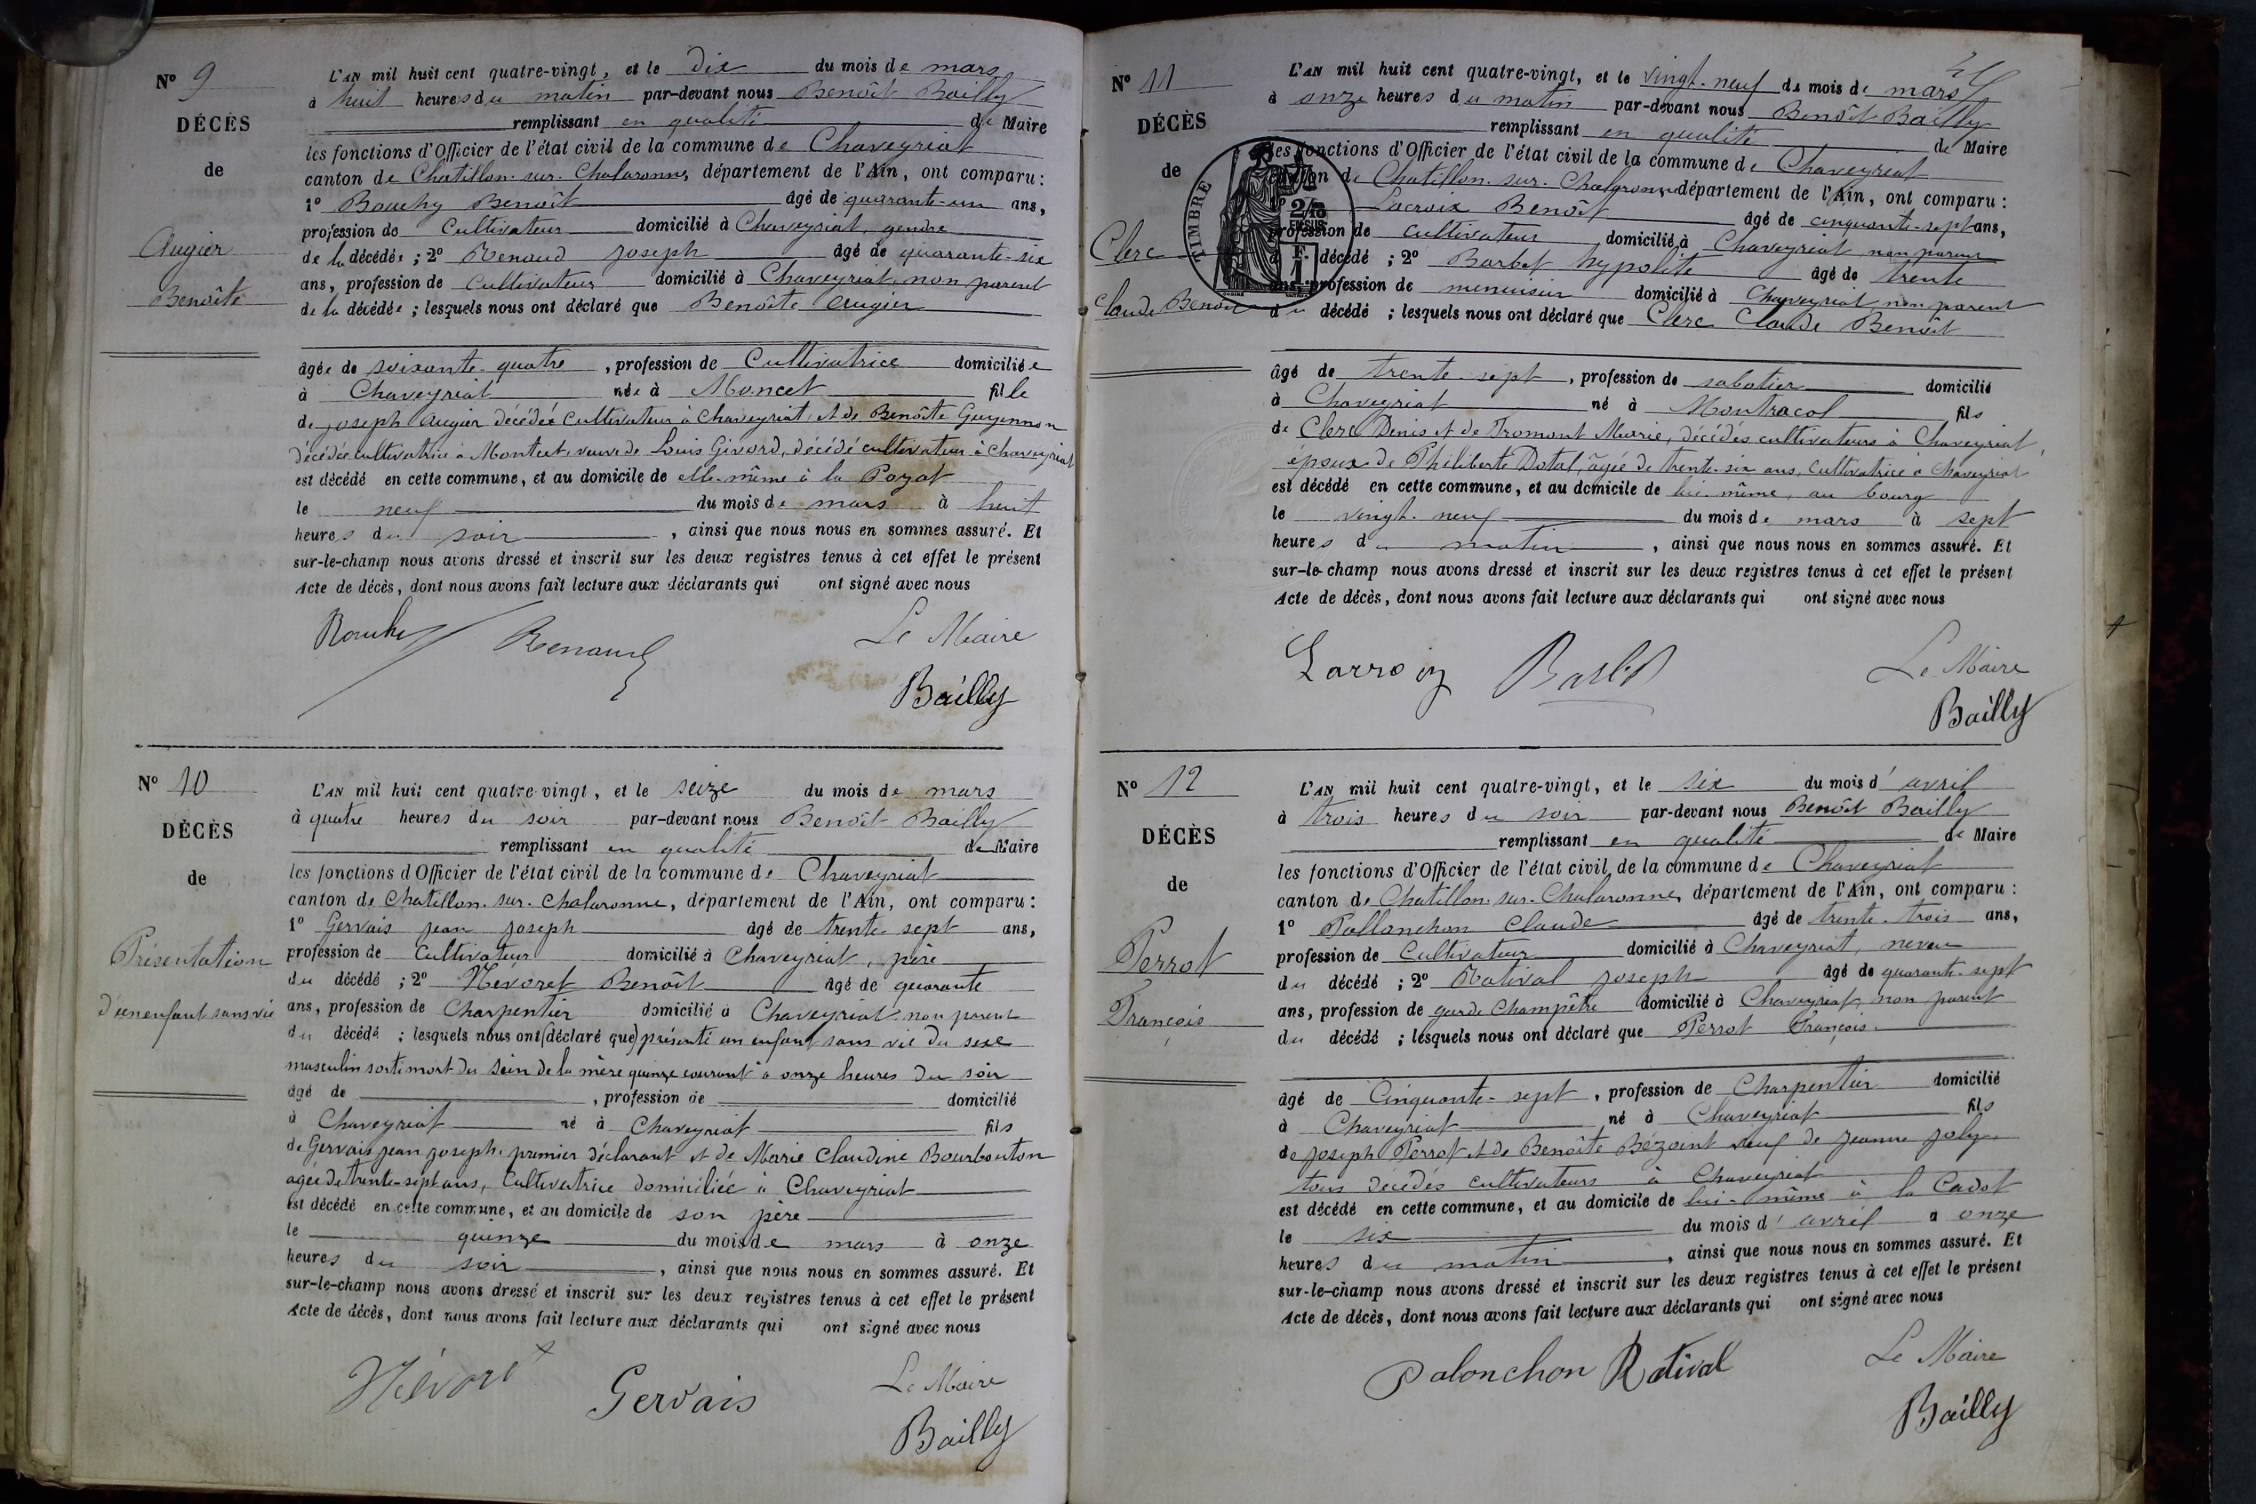 N° 9
DÉCÈS
de
Augier
Benoîte
L'AN mil huit cent quatre-vingt, et le dix du mois de mars
à huit heures du matin par-devant nous Benoît Bailly
remplissant en qualité de Maire
les fonctions d'Officier de l'état civil de la commune de Chaveyriat
canton de Chatillon-sur-Chalaronne, département de l'Ain, ont comparu :
1° Bouchy Benoît âgé de quarante-un ans,
profession de Cultivateur domicilié à Chaveyriat, gendre
de la décédée ; 2° Renaud Joseph âgé de quarante-six
ans, profession de Cultivateur domicilié à Chaveyriat, non parent
de la décédée ; lesquels nous ont déclaré que Benoîte Augier
âgée de soixante-quatre , profession de Cultivatrice domiciliée
à Chaveyriat née à Moncet fille
de Joseph Augier décédé cultivateur à Chaveyriat, et de Benoîte Guyennon
décédée cultivatrice à Montcet, veuve de Louis Givord, décédé cultivateur à Chaveyriat
est décédé en cette commune, et au domicile de elle-même à la Pozat
le neuf du mois de mars à huit
heures du soir , ainsi que nous nous en sommes assuré. Et
sur-le-champ nous avons dressé et inscrit sur les deux registres tenus à cet effet le présent
Acte de décès, dont nous avons fait lecture aux déclarants qui ont signé avec nous
Renaud Le Maire
Bailly
N° 10
DÉCÈS
de
Présentation
d'un enfant sans vie
L'AN mil huit cent quatre-vingt, et le seize du mois de mars
à quatre heures du soir par-devant nous Benoît Bailly
remplissant en qualité de Maire
les fonctions d'Officier de l'état civil de la commune de Chaveyriat
canton de Chatillon-sur-Chalaronne, département de l'Ain, ont comparu :
1° Gervais Jean Joseph âgé de trente-sept ans,
profession de Cultivateur domicilié à Chaveyriat, père
du décédé ; 2° Névoret Benoît âgé de quarante
ans, profession de Charpentier domicilié à Chaveyriat non parent
du décédé ; lesquels nous ont (déclaré que) présenté un enfant sans vie du sexe
masculin sorti mort du sein de la mère quinze courant à onze heures du soir
âgé de , profession de domicilié
à Chaveyriat né à Chaveyriat fils
de Gervais Jean Joseph, premier déclarant et de Marie Claudine Bourbouton
agée de trente-sept ans, Cultivatrice domiciliée à Chaveyriat
est décédé en cette commune, et au domicile de son père
le quinze du mois de mars à onze
heures du soir , ainsi que nous nous en sommes assuré. Et
sur-le-champ nous avons dressé et inscrit sur les deux registres tenus à cet effet le présent
Acte de décès, dont nous avons fait lecture aux déclarants qui ont signé avec nous
Névoret Gervais Le Maire
Bailly
N° 11
DÉCÈS
de
Clerc
Claude Benoît
TIMBRE
L'AN mil huit cent quatre-vingt, et le vingt-neuf du mois de mars
à onze heures du matin par-devant nous Benoît Bailly
remplissant en qualité de Maire
les fonctions d'Officier de l'état civil de la commune de Chaveyriat
canton de Chatillon-sur-Chalaronne, département de l'Ain, ont comparu :
1° Lacroix Benoît âgé de cinquante-sept ans,
profession de cultivateur domicilié à Chaveyriat non parent
du décédé ; 2° Barbet hypolite âgé de trente
ans, profession de menuisier domicilié à Chaveyriat non parent
du décédé ; lesquels nous ont déclaré que Clerc Claude Benoît
âgé de trente-sept , profession de sabotier domicilié
à Chaveyriat né à Montracol fils
de Clerc Denis et de Fromont Marie, décédés cultivateurs à Chaveyriat,
époux de Philiberte Dotal, âgée de trente-six ans, cultivatrice à Chaveyriat
est décédé en cette commune, et au domicile de lui-même, au bourg
le vingt-neuf du mois de mars à sept
heures du matin , ainsi que nous nous en sommes assuré. Et
sur-le-champ nous avons dressé et inscrit sur les deux registres tenus à cet effet le présent
Acte de décès, dont nous avons fait lecture aux déclarants qui ont signé avec nous
Barbet Le Maire
Bailly
N° 12
DÉCÈS
de
Perrot
François
L'AN mil huit cent quatre-vingt, et le six du mois d'avril
à trois heures du soir par-devant nous Benoît Bailly
remplissant en qualité de Maire
les fonctions d'Officier de l'état civil de la commune de Chaveyriat
canton de Chatillon-sur-Chalaronne, département de l'Ain, ont comparu :
1° Pallanchon Claude âgé de trente-trois ans,
profession de Cultivateur domicilié à Chaveyriat, neveu
du décédé ; 2° Ratival Joseph âgé de quarante-sept
ans, profession de garde Champêtre domicilié à Chaveyriat, non parent
du décédé ; lesquels nous ont déclaré que Perrot François
âgé de Cinquante-sept , profession de Charpentier domicilié
à Chaveyriat né à Chaveyriat fils
de Joseph Perrot et de Benoîte Bézoint veuf de Jeanne Joly
tous décédés cultivateurs à Chaveyriat
est décédé en cette commune, et au domicile de lui-même à la Cadot
le six du mois d'avril à onze
heures du matin , ainsi que nous nous en sommes assuré. Et
sur-le-champ nous avons dressé et inscrit sur les deux registres tenus à cet effet le présent
Acte de décès, dont nous avons fait lecture aux déclarants qui ont signé avec nous
Palonchon Ratival Le Maire
Bailly